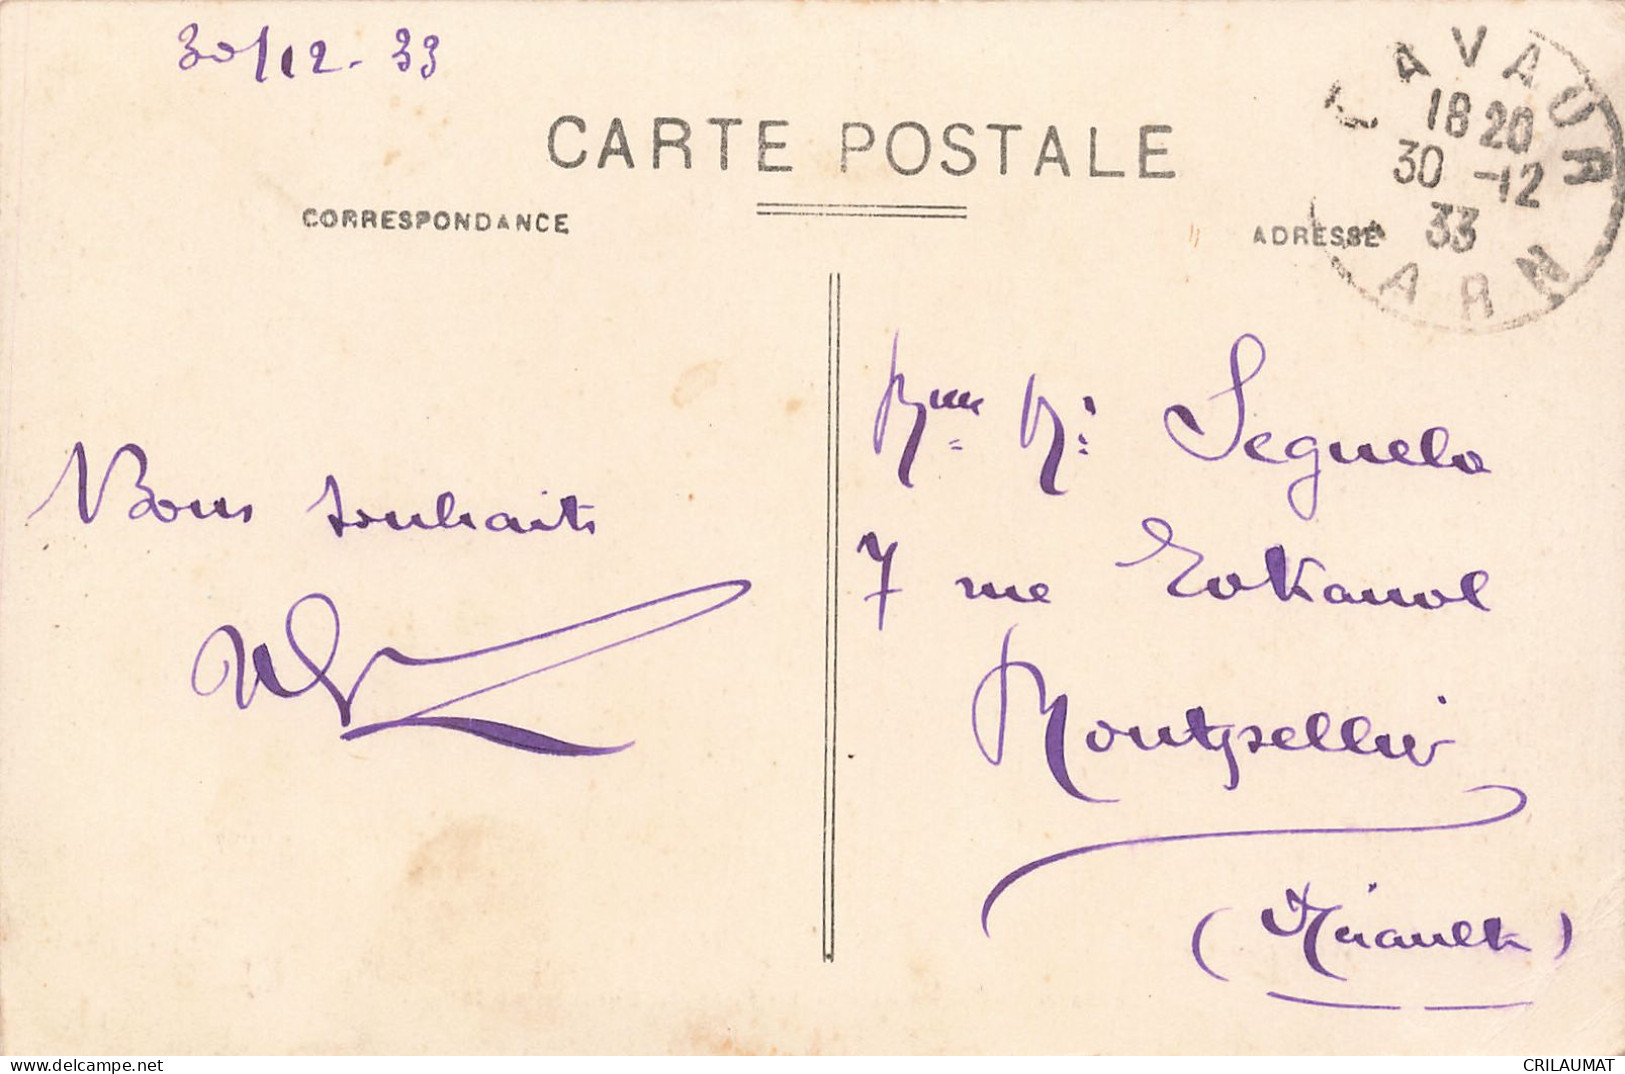 30/12-33
LAVAUR
18 20
30 -12
33
TARN
CARTE POSTALE
CORRESPONDANCE
ADRESSE
Mme M. Seguela
7 rue
Bons souhaits
Montpellier
(Hérault)
delcampe.net
CRILAUMAT